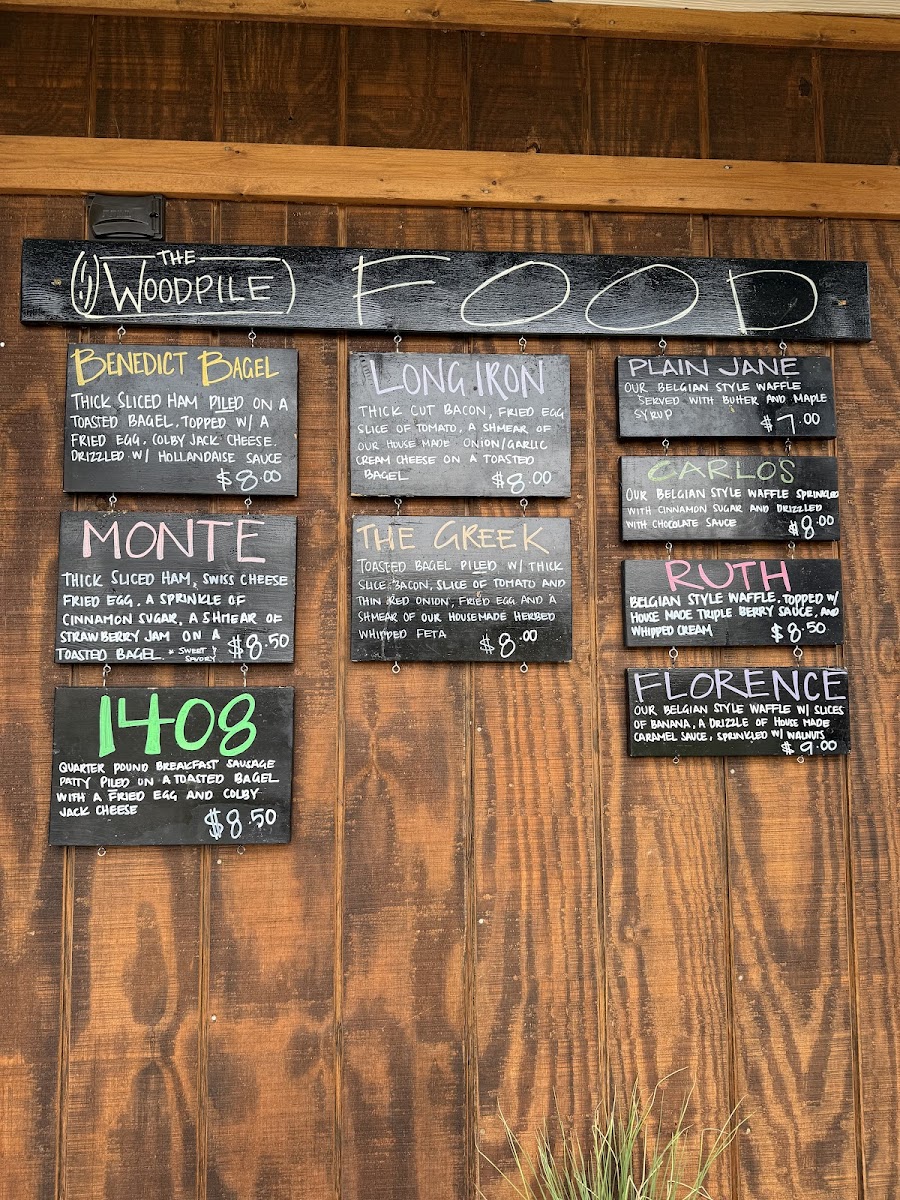 THE
WOODPILE
FOOD
BENEDICT BAGEL
THICK SLICED HAM PILED ON A
TOASTED BAGEL. TOPPED W/ A
FRIED EGG, COLBY JACK CHEESE.
DRIZZLED W/ HOLLANDAISE SAUCE
$8.00
MONTE
THICK SLICED HAM, SWISS CHEESE
FRIED EGG, A SPRINKLE OF
CINNAMON SUGAR, A SHMEAR OF
STRAWBERRY JAM ON A
TOASTED BAGEL. * SWEET &
SAVORY
$8.50
1408
QUARTER POUND BREAKFAST SAUSAGE
PATTY PILED ON A TOASTED BAGEL
WITH A FRIED EGG AND COLBY
JACK CHEESE
$8.50
LONG IRON
THICK CUT BACON, FRIED EGG
SLICE OF TOMATO, A SHMEAR OF
OUR HOUSE MADE ONION/GARLIC
CREAM CHEESE ON A TOASTED
BAGEL $8.00
THE GREEK
TOASTED BAGEL PILED W/ THICK
SLICE BACON, SLICE OF TOMATO AND
THIN RED ONION, FRIED EGG AND A
SHMEAR OF OUR HOUSEMADE HERBED
WHIPPED FETA $8.00
PLAIN JANE
OUR BELGIAN STYLE WAFFLE
SERVED WITH BUTTER AND MAPLE
SYRUP $7.00
CARLOS
OUR BELGIAN STYLE WAFFLE SPRINKLED
WITH CINNAMON SUGAR AND DRIZZLED
WITH CHOCOLATE SAUCE $8.00
RUTH
BELGIAN STYLE WAFFLE, TOPPED W/
HOUSE MADE TRIPLE BERRY SAUCE, AND
WHIPPED CREAM $8.50
FLORENCE
OUR BELGIAN STYLE WAFFLE W/ SLICES
OF BANANA, A DRIZZLE OF HOUSE MADE
CARAMEL SAUCE, SPRINKLED W/ WALNUTS
$9.00